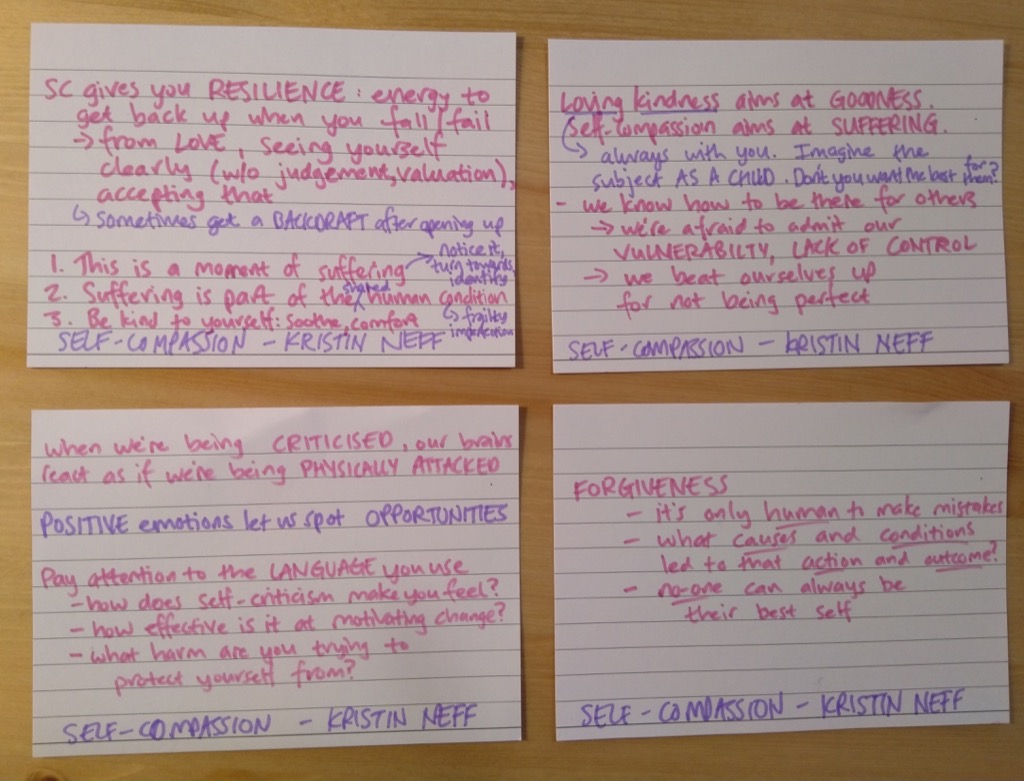 SC gives you RESILIENCE: energy to
get back up when you fall/fail
→ from LOVE, seeing yourself
clearly (w/o judgement, valuation),
accepting that
↳ sometimes get a BACKDRAFT after opening up
1. This is a moment of suffering → notice it,
turn towards,
identify
2. Suffering is part of the shared human condition
↳ frailty
imperfection
3. Be kind to yourself: soothe, comfort
SELF-COMPASSION - KRISTIN NEFF
Loving kindness aims at GOODNESS.
Self-compassion aims at SUFFERING.
↳ always with you. Imagine the
subject AS A CHILD. Don't you want the best for them?
- we know how to be there for others
→ we're afraid to admit our
VULNERABILTY, LACK OF CONTROL
→ we beat ourselves up
for not being perfect
SELF-COMPASSION - KRISTIN NEFF
when we're being CRITICISED, our brains
react as if we're being PHYSICALLY ATTACKED
POSITIVE emotions let us spot OPPORTUNITIES
Pay attention to the LANGUAGE you use
- how does self-criticism make you feel?
- how effective is it at motivating change?
- what harm are you trying to
protect yourself from?
SELF-COMPASSION - KRISTIN NEFF
FORGIVENESS
- it's only human to make mistakes
- what causes and conditions
led to that action and outcome?
- no-one can always be
their best self
SELF-COMPASSION - KRISTIN NEFF